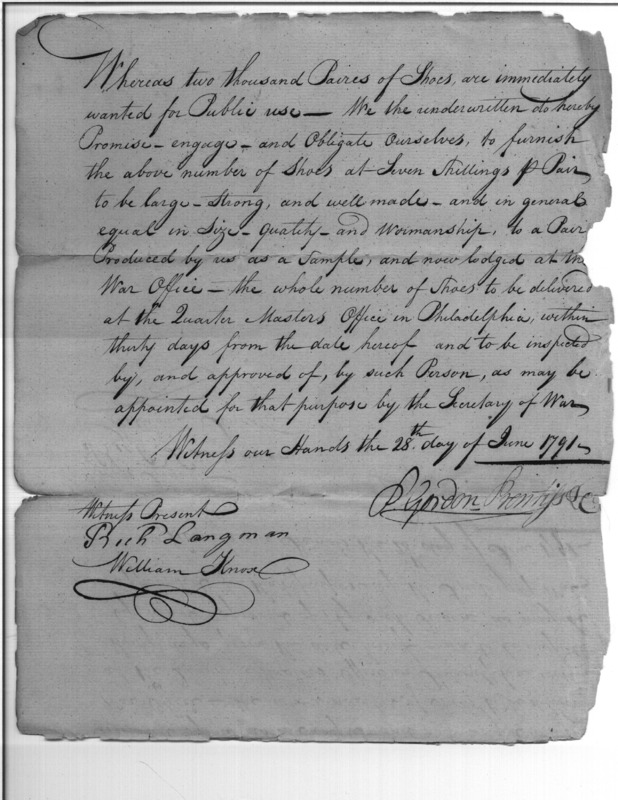 Whereas two thousand Paires of Shoes, are immediately
wanted for Public use — We the underwritten do hereby
Promise – engage – and Obligate Ourselves, to furnish
the above number of Shoes at Seven Shillings ⅌ Pair,
to be large – Strong, and well made – and in general
equal in Size – Quality – and Workmanship, to a Pair
Produced by us as a Sample, and now lodged at the
War Office – the whole number of Shoes to be delivered
at the Quarter Masters Office in Philadelphia, within
thirty days from the date hereof and to be inspected
by, and approved of, by such Person, as may be
appointed for that purpose by the Secretary of War
Witness our Hands the 28th. day of June 1791 –
Gordon
Witness Present
Rich Langman
William Knox